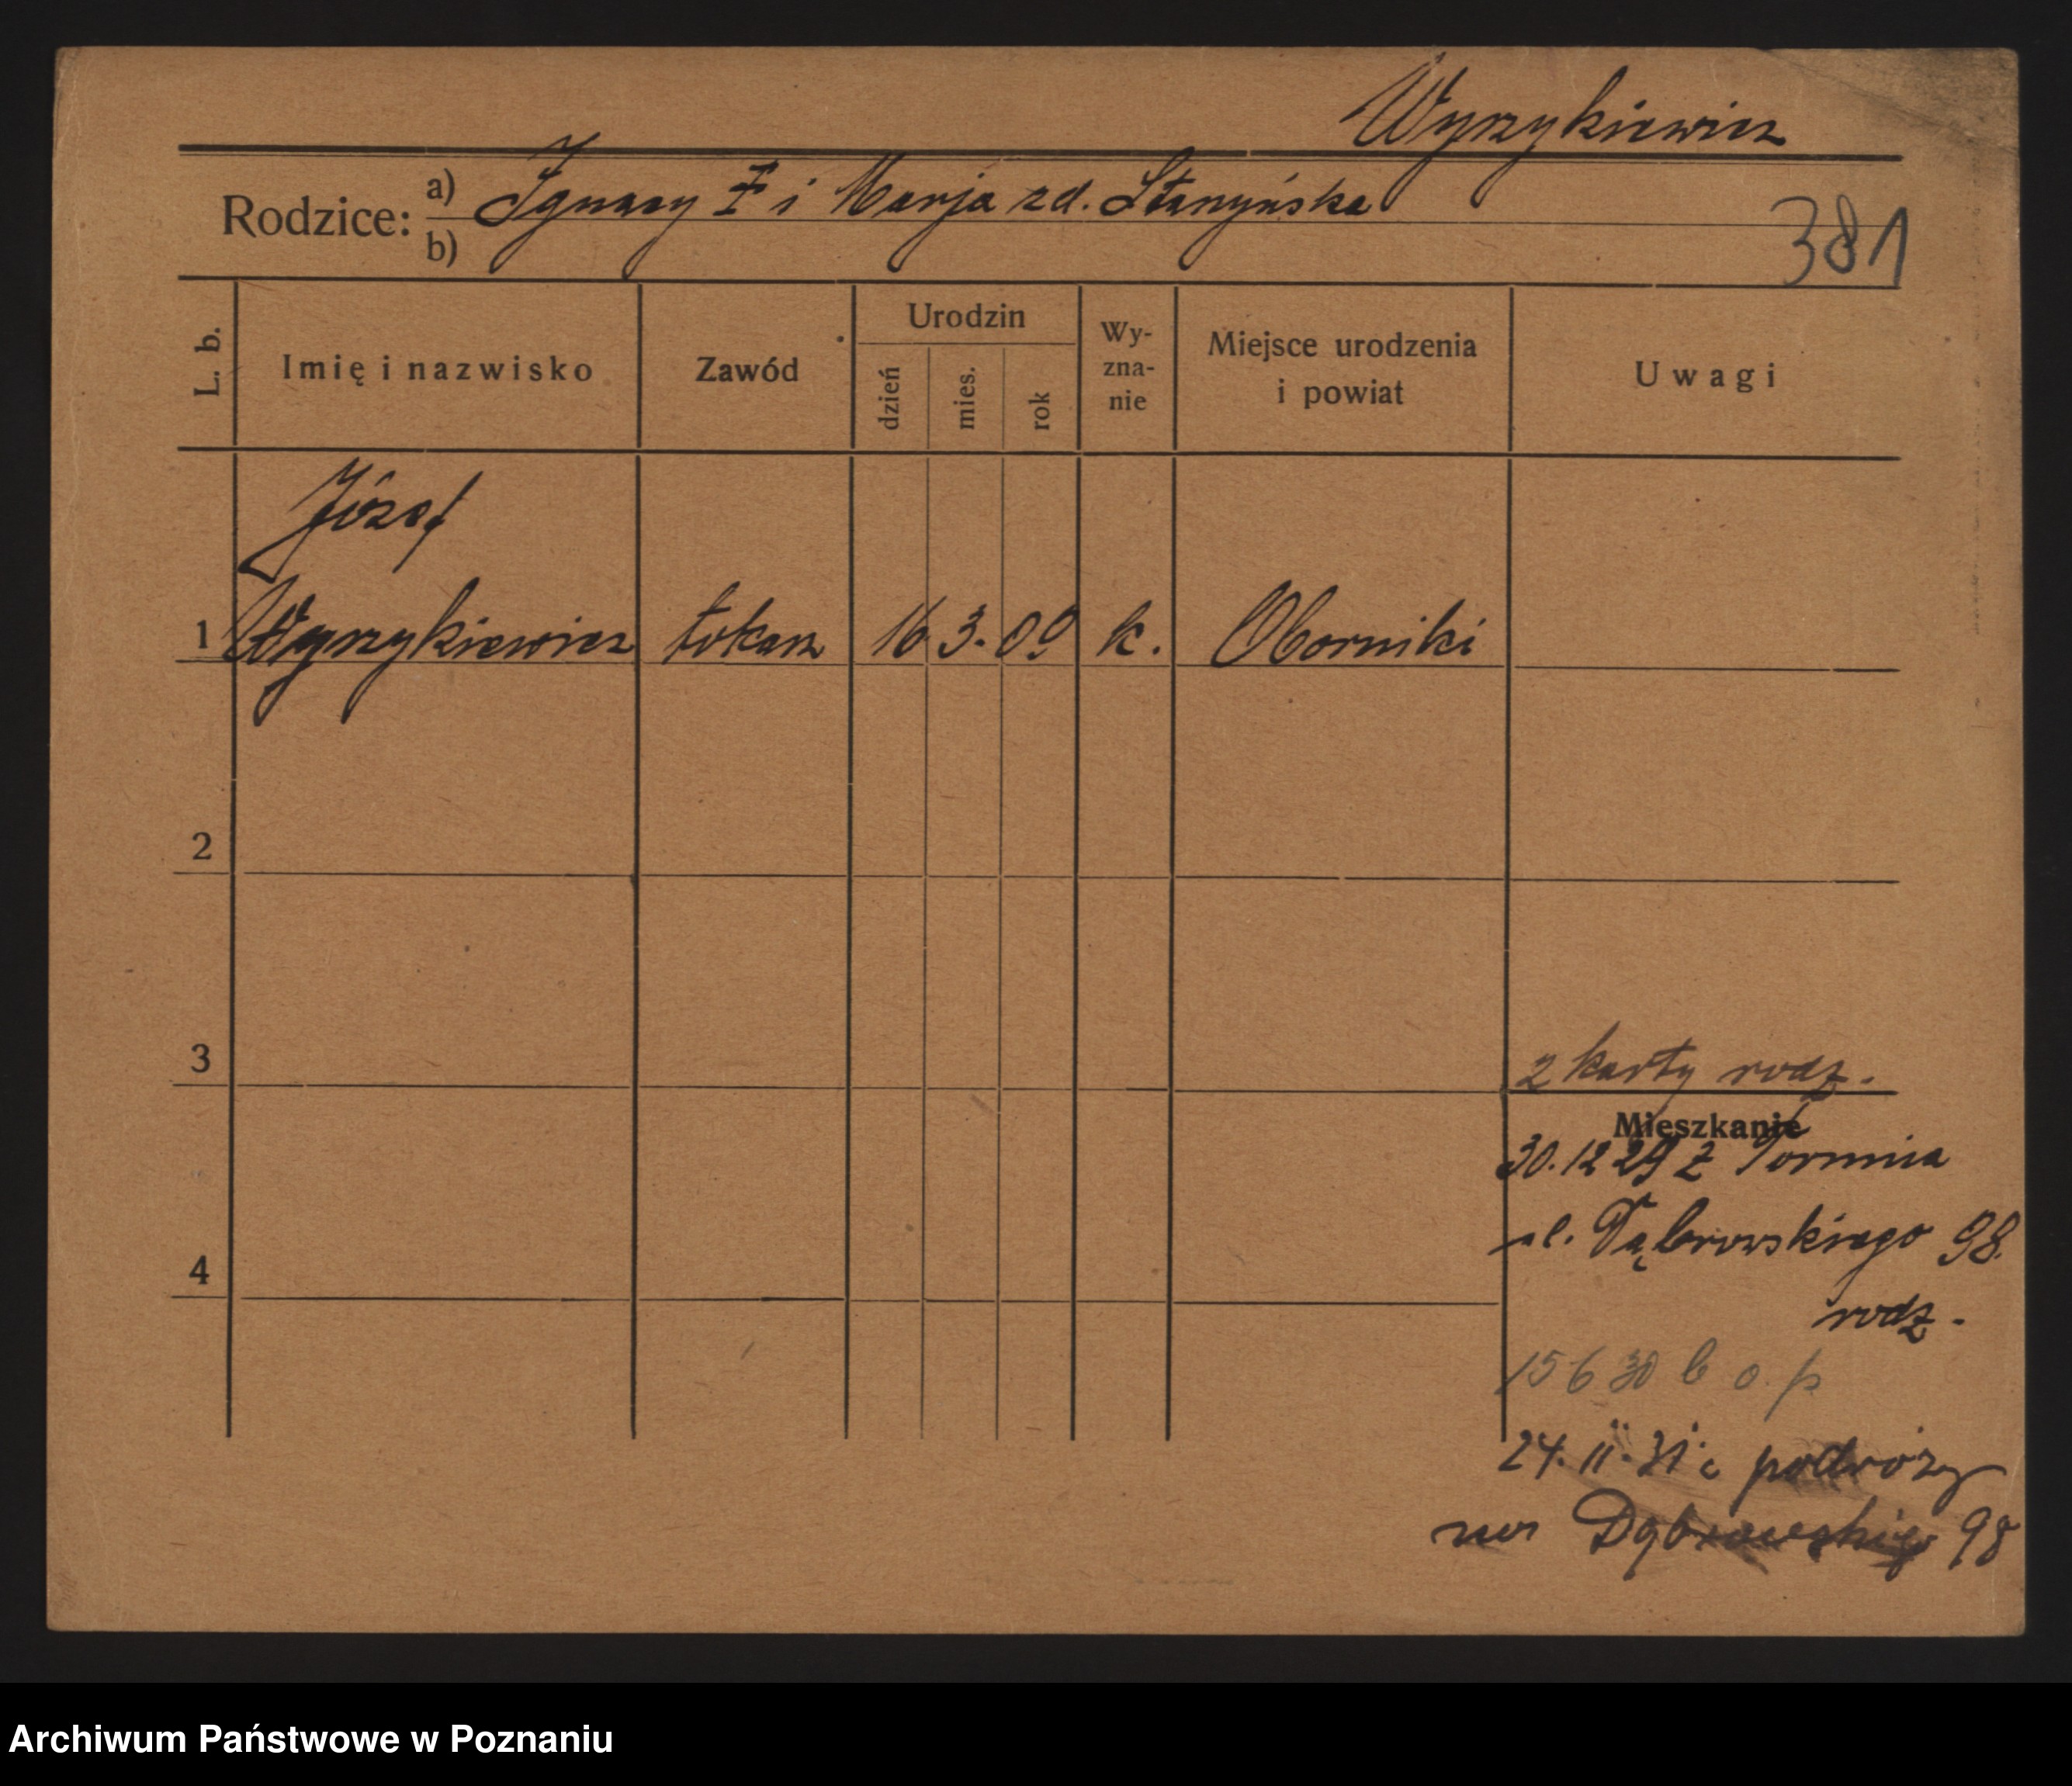 Wyrzykiewicz
Rodzice: a) Ignacy i Marja zd.
b)
381
L. b. Imię i nazwisko Zawód Urodzin dzień mies. rok Wy-zna-nie Miejsce urodzenia i powiat Uwagi
Józef
1 Wyrzykiewicz tokarz 16 3. 00 k. Oborniki
2
3
2 karty rodz.
Mieszkanie
30.12 29 z Torunia
ul. Dąbrowskiego 98.
4
rodz.
15 6 30 b o. p.
24. II. 31 z podróży
Dąbrowskiego 98
Archiwum Państwowe w Poznaniu